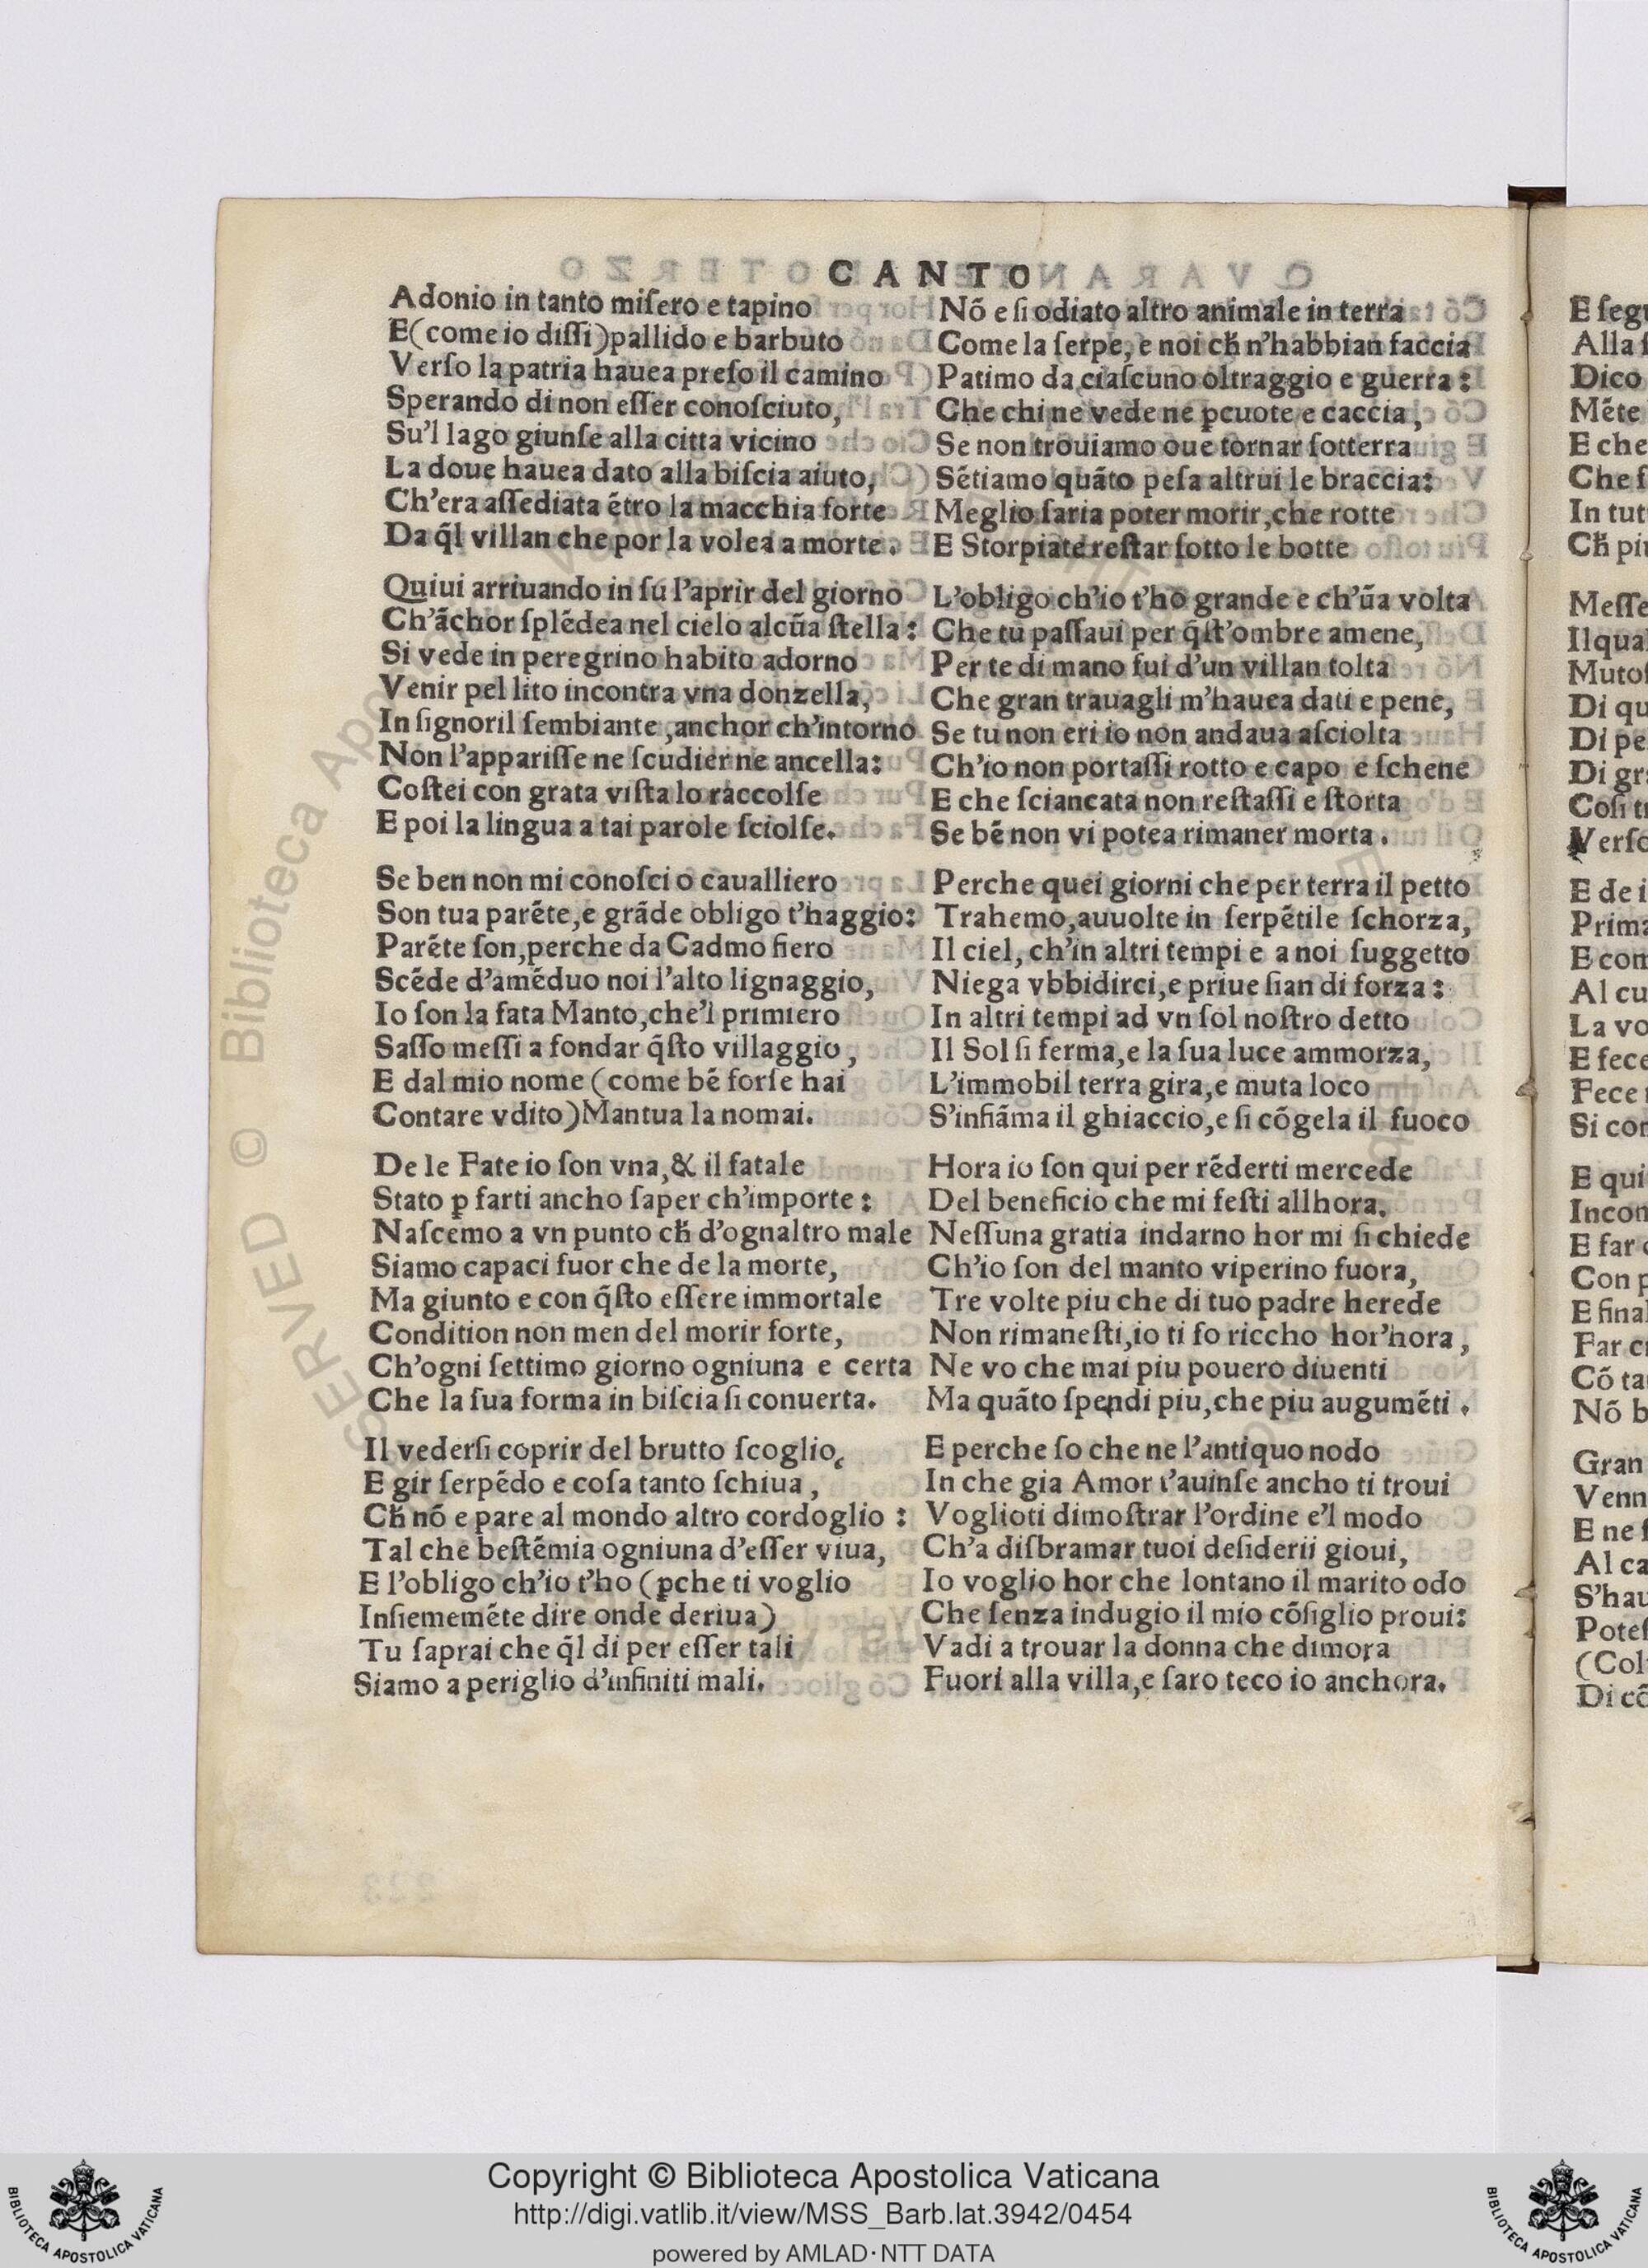 CANTO
Adonio in tanto miſero e tapino
E(come io diſſi)pallido e barbuto
Verſo la patria hauea preſo il camino
Sperando di non eſſer conoſciuto,
Su'l lago giunſe alla citta vicino
La doue hauea dato alla biſcia aiuto,
Ch'era aſſediata ẽtro la macchia forte
Da q̃l villan che por la volea a morte.
Quiui arriuando in ſu l'aprir del giorno
Ch'ãchor ſplẽdea nel cielo alcũa ſtella:
Si vede in peregrino habito adorno
Venir pel lito incontra vna donzella,
In ſignoril ſembiante,anchor ch'intorno
Non l'appariſſe ne ſcudier ne ancella:
Coſtei con grata viſta lo raccolſe
E poi la lingua a tai parole ſciolſe.
Se ben non mi conoſci o caualliero
Son tua parẽte,e grãde obligo t'haggio:
Parẽte ſon,perche da Cadmo fiero
Scẽde d'amẽduo noi l'alto lignaggio,
Io ſon la fata Manto,che'l primiero
Saſſo meſſi a fondar q̃ſto villaggio,
E dal mio nome (come bẽ forſe hai
Contare vdito)Mantua la nomai.
De le Fate io ſon vna,& il fatale
Stato ꝑ farti ancho ſaper ch'importe:
Naſcemo a vn punto cħ d'ognaltro male
Siamo capaci fuor che de la morte,
Ma giunto e con q̃ſto eſſere immortale
Condition non men del morir forte,
Ch'ogni ſettimo giorno ogniuna e certa
Che la ſua forma in biſcia ſi conuerta.
Il vederſi coprir del brutto ſcoglio,
E gir ſerpẽdo e coſa tanto ſchiua,
Cħ nõ e pare al mondo altro cordoglio:
Tal che beſtẽmia ogniuna d'eſſer viua,
E l'obligo ch'io t'ho (ꝑche ti voglio
Inſiememẽte dire onde deriua)
Tu ſaprai che q̃l di per eſſer tali
Siamo a periglio d'infiniti mali.
Nõ e ſi odiato altro animale in terra
Come la ſerpe, e noi cħ n'habbian faccia
Patimo da ciaſcuno oltraggio e guerra:
Che chi ne vede ne ꝑcuote e caccia,
Se non trouiamo oue tornar ſotterra
Sẽtiamo quãto peſa altrui le braccia:
Meglio ſaria poter morir,che rotte
E Storpiate reſtar ſotto le botte
L'obligo ch'io t'ho grande e ch'ũa volta
Che tu paſſaui per q̃ſt'ombre amene,
Per te di mano fui d'un villan tolta
Che gran trauagli m'hauea dati e pene,
Se tu non eri io non andaua aſciolta
Ch'io non portaſſi rotto e capo e ſchene
E che ſciancata non reſtaſſi e ſtorta
Se bẽ non vi potea rimaner morta.
Perche quei giorni che per terra il petto
Trahemo,auuolte in ſerpẽtile ſchorza,
Il ciel, ch'in altri tempi e a noi ſuggetto
Niega vbbidirci,e priue ſian di forza:
In altri tempi ad vn ſol noſtro detto
Il Sol ſi ferma,e la ſua luce ammorza,
L'immobil terra gira,e muta loco
S'infiãma il ghiaccio,e ſi cõgela il fuoco
Hora io ſon qui per rẽderti mercede
Del beneficio che mi feſti allhora.
Neſſuna gratia indarno hor mi ſi chiede
Ch'io ſon del manto viperino fuora,
Tre volte piu che di tuo padre herede
Non rimaneſti,io ti fo riccho hor'hora,
Ne vo che mai piu pouero diuenti
Ma quãto ſpendi piu,che piu augumẽti.
E perche ſo che ne l'antiquo nodo
In che gia Amor t'auinſe ancho ti troui
Voglioti dimoſtrar l'ordine e'l modo
Ch'a diſbramar tuoi deſiderii gioui,
Io voglio hor che lontano il marito odo
Che ſenza indugio il mio cõſiglio proui:
Vadi a trouar la donna che dimora
Fuori alla villa,e ſaro teco io anchora.
E ſegu
Alla
Dico
Mẽte
E che
Che
In tut
Cħ piu
Meſſe
Ilqual
Mutoſ
Di qu
Di pe
Di gr
Coſi t
Verſo
E de i
Prima
E com
Al cu
La vo
E fece
Fece
Si con
E qui
Incon
E far
Con p
E final
Far c
Cõ ta
Nõ b
Gran
Venn
E ne
Al ca
S'hau
Poteſ
(Col
Di cõ
© Biblioteca Apo
SERVED
Copyright © Biblioteca Apostolica Vaticana
http://digi.vatlib.it/view/MSS_Barb.lat.3942/0454
powered by AMLAD·NTT DATA
BIBLIOTECA APOSTOLICA VATICANA
BIBLIOTECA APOSTOLICA VATICANA